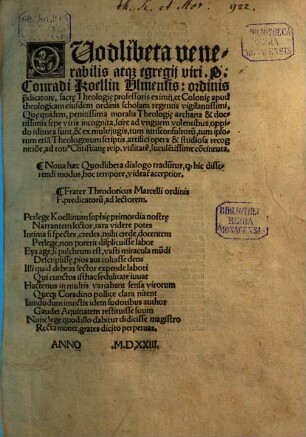 th. Sc. et Mor. 922.
BIBLIOTHECA
REGIA
MONACENSIS.
QUodlibeta vene⸗
rabilis atqꝫ egregij viri. P.
Conradi Koellin Vlmensis: ordinis
p̄dicatorꝝ, sacrę Theologię professoris eximij, et Colonię apud
theologicam eiusdem ordinis scholam regentis vigilantissimi,
Quę quidem, penitissima moralis Theologię archana & doc⸗
tissimis sepe viris incognita, scire ad vnguem volentibus, oppi⸗
do idonea sunt, & ex multijugis, tum iurisconsultorū, tum ipso⸗
rum etiā Theologorum scriptis, artifici opera & studiosa recog
nitiōe, ad totiꝰ Christianę reip. vtilitatē, luculētissime cōcinnata.
¶ Noua hæc Quodlibeta dialogo tradūtur, ꝙ hic disse⸗
rendi modus, hoc tempore, videat̄ acceptior.
¶ Frater Theodoricus Marcelli ordinis
F. predicatorū, ad lectorem.
Perlege Koellinum sophię primordia nostrę
Narrantem lector, rara videre potes
Intima si spectes, credes, mihi crede, docentem
Perlege, non poterit displicuisse labor
Eya age, si pulchrum est, vasti miracula mūdi
Descripsisse, pios aut coluisse deos
Illi quid debeas lector expende labori
Qui cunctos isthæc sedulitate iuuat
Hactenus in multis variabant sensa virorum
Quęqꝫ Coradino pollice clara nitent
Iamdudum inuictis idem sudoribus author
Gaudet Aquinatem restituisse suum
Nunc lege, quod illo dabitur didicisse magistro
Recta monet, grates dicito perpetuas.
BIBLIOTHECA
REGIA
MONACENSIS.
BIBLIOTHECA
REGIA
MONACENSIS
ANNO M.D.XXIII.